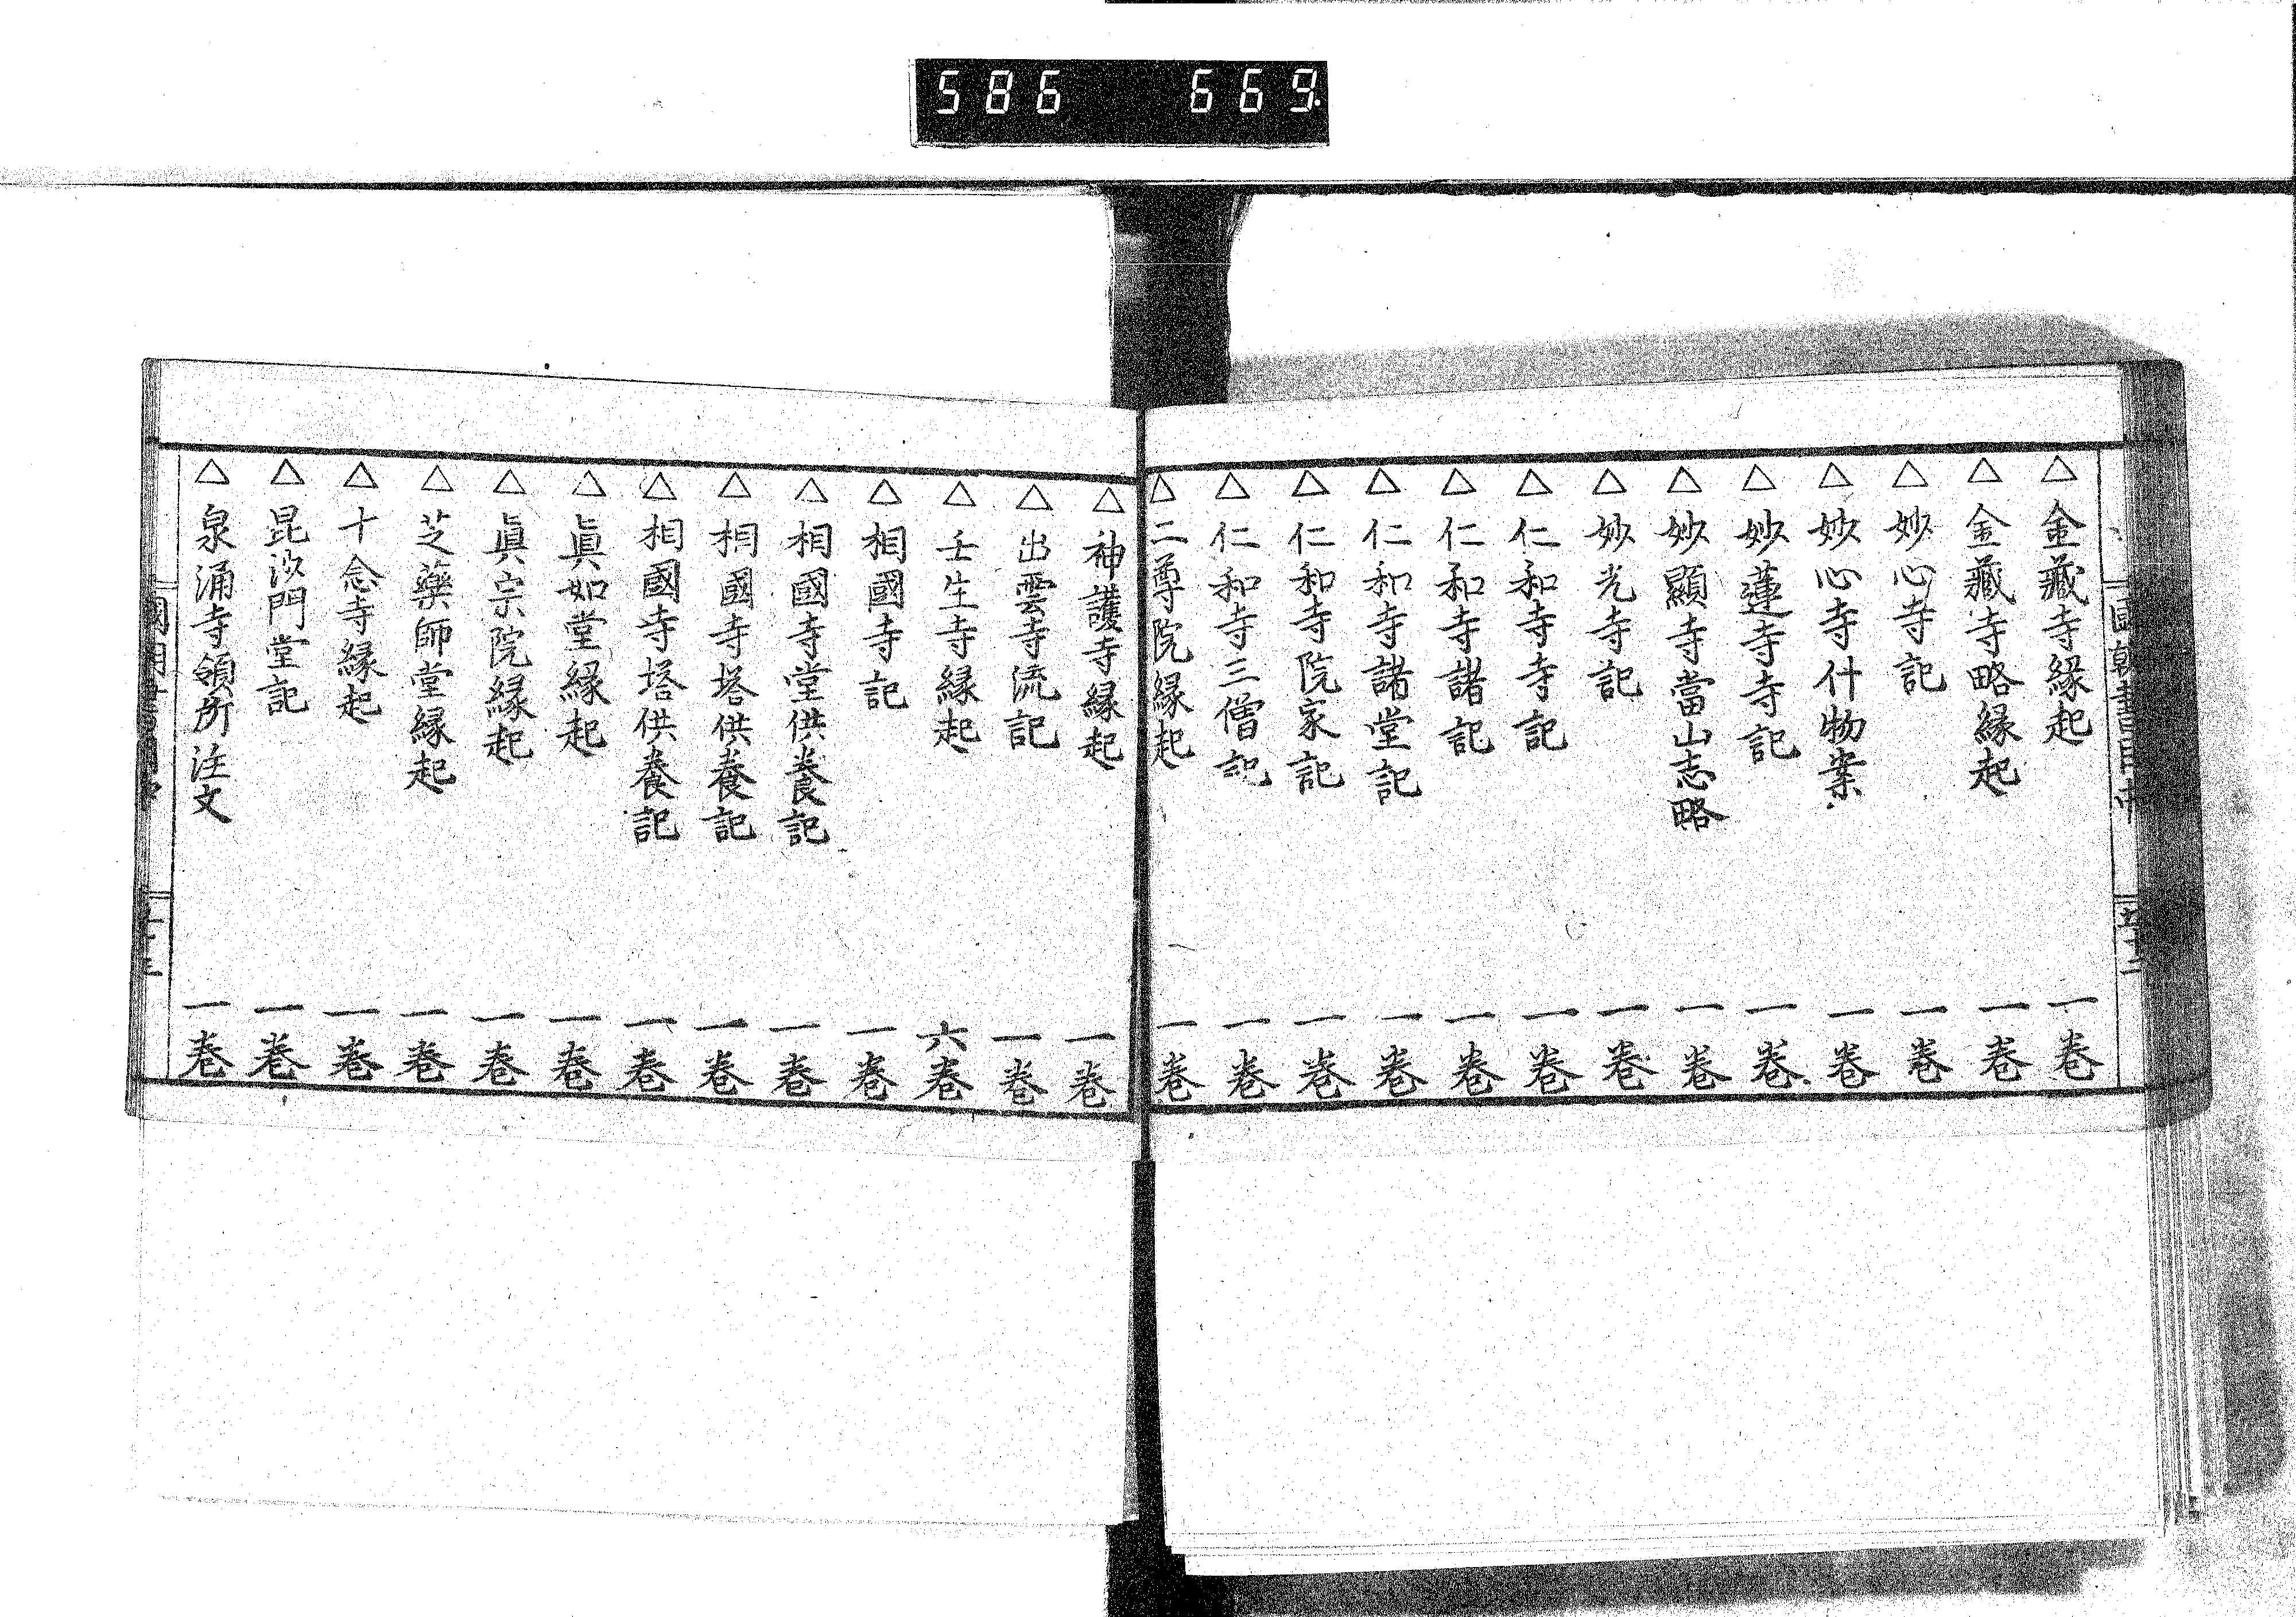 586 669.
國朝書目中
△金藏寺縁起 一卷
△金藏寺略縁起 一卷
△妙心寺記 一卷
△妙心寺什物案 一卷
△妙蓮寺寺記 一卷
△妙顯寺當山志略 一卷
△妙光寺記 一卷
△仁和寺寺記 一卷
△仁和寺諸記 一卷
△仁和寺諸堂記 一卷
△仁和寺院家記 一卷
△仁和寺三僧記 一卷
△二尊院縁起 一卷
△神護寺縁起 一卷
△出雲寺流記 一卷
△壬生寺縁起 六卷
△相國寺記 一卷
△相國寺堂供養記 一卷
△相國寺塔供養記 一卷
△相國寺塔供養記 一卷
△眞如堂縁起 一卷
△眞宗院縁起 一卷
△芝藥師堂縁起 一卷
△十念寺縁起 一卷
△昆沙門堂記 一卷
△泉涌寺領所注文 一卷